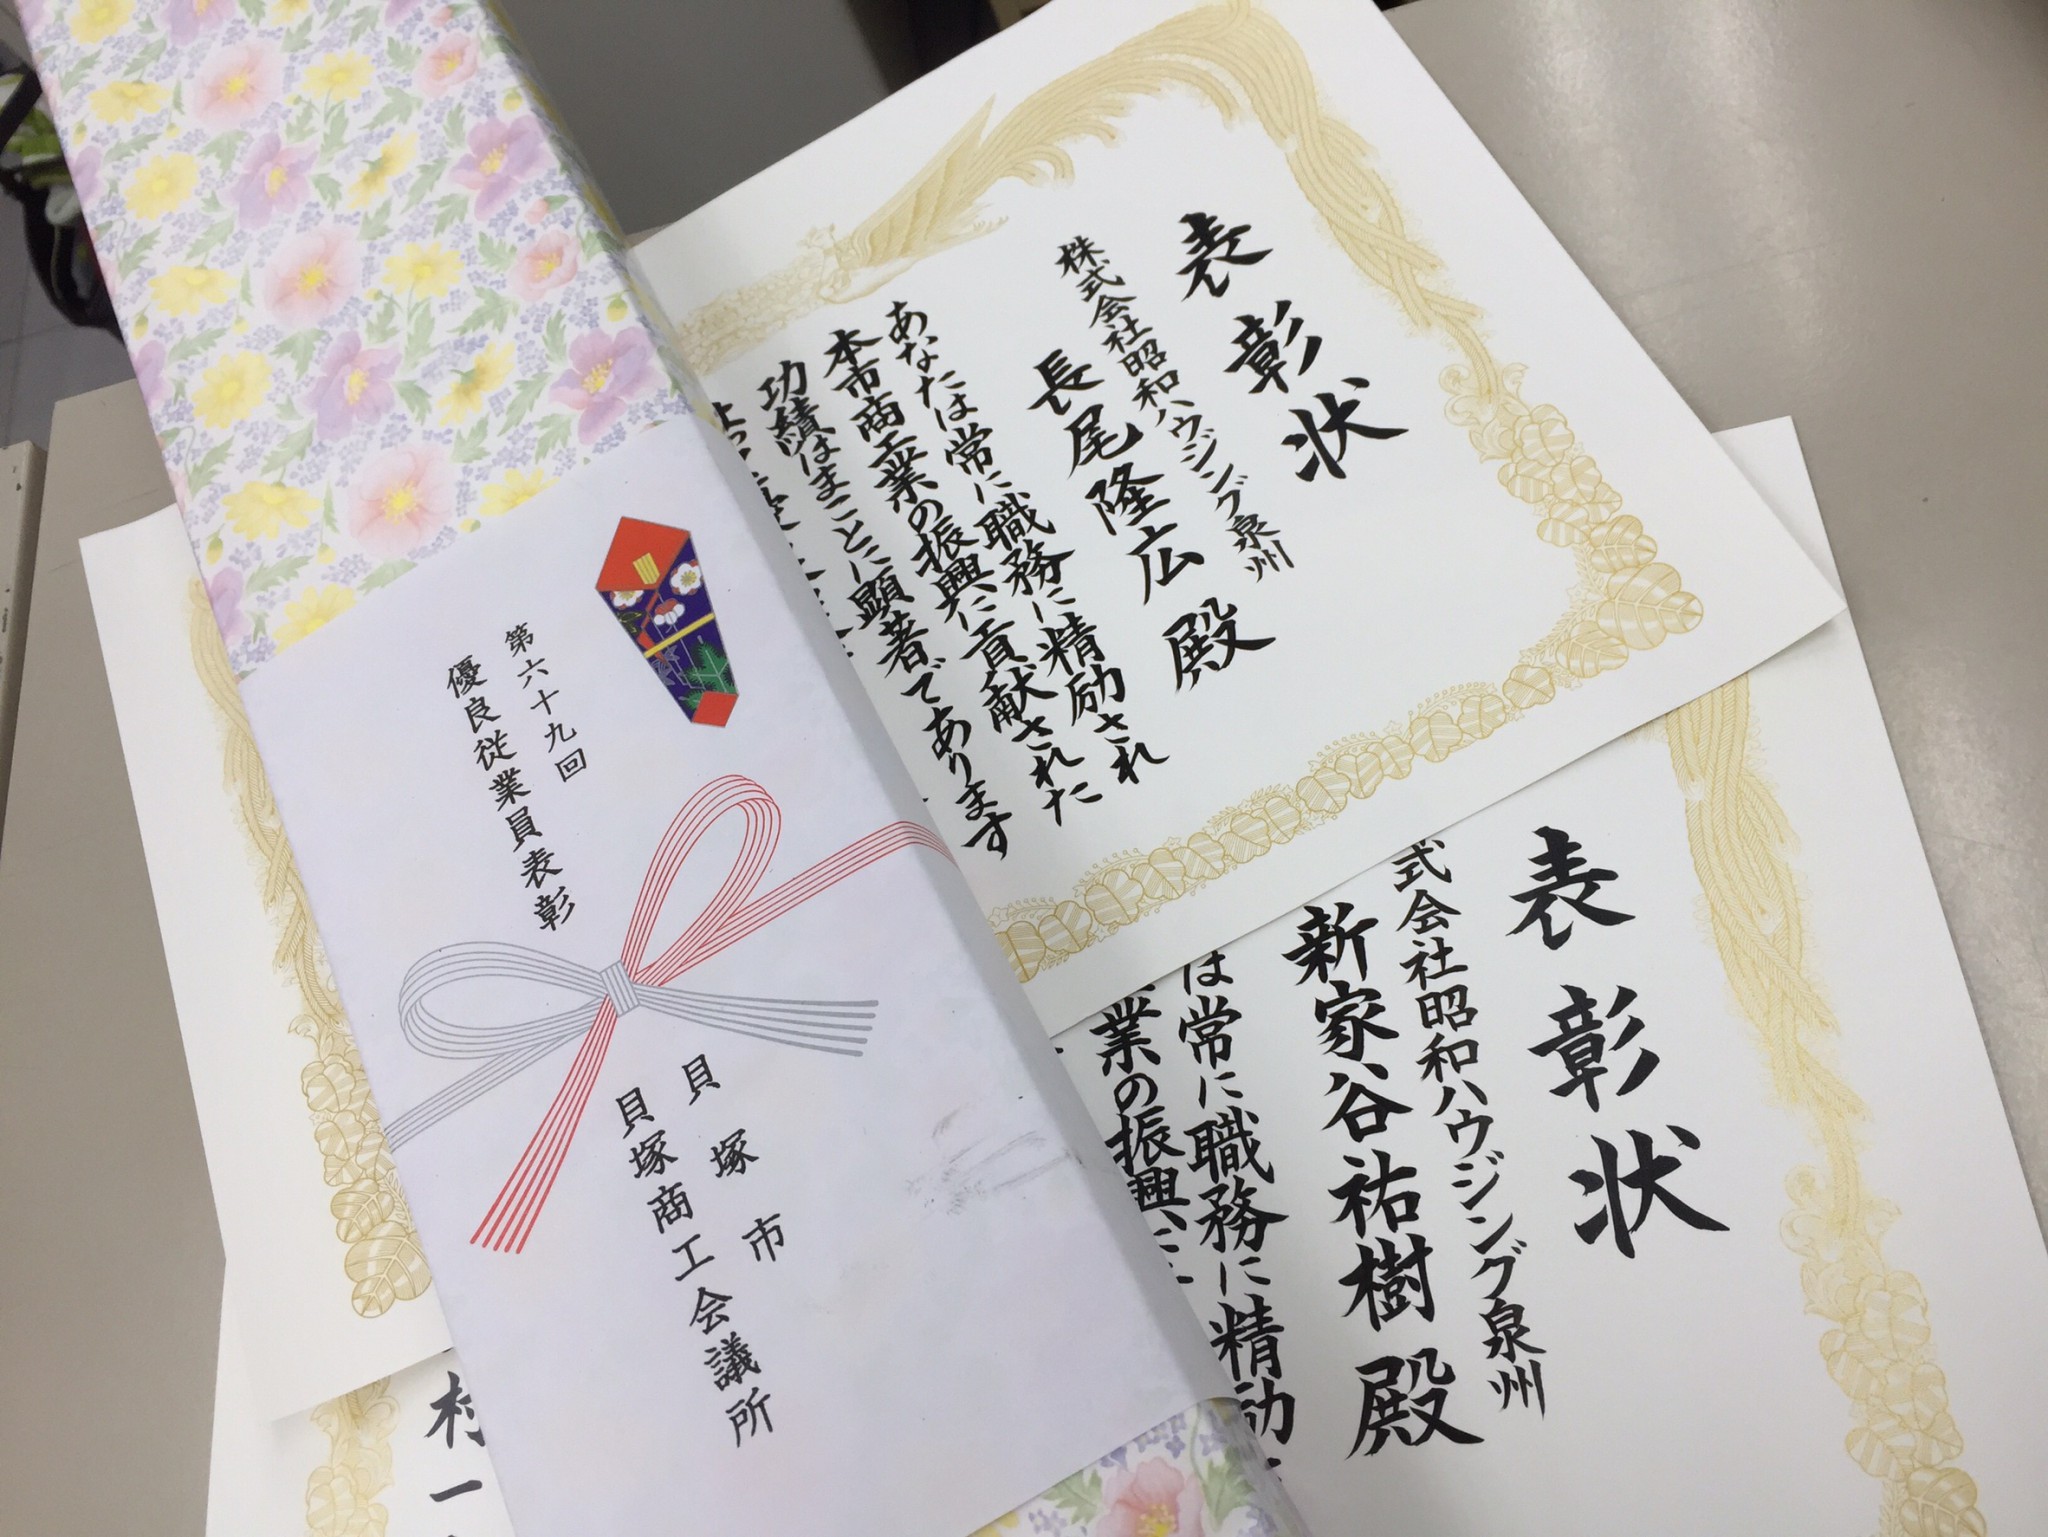 表彰状
株式会社昭和ハウジング泉州
長尾隆広殿
あなたは常に職務に精励され
本市商工業の振興に貢献された
功績はまことに顕著であります
表彰状
式会社昭和ハウジング泉州
新家谷祐樹殿
は常に職務に精励
業の振興に
第六十九回
優良従業員表彰
貝塚市
貝塚商工会議所
村
一